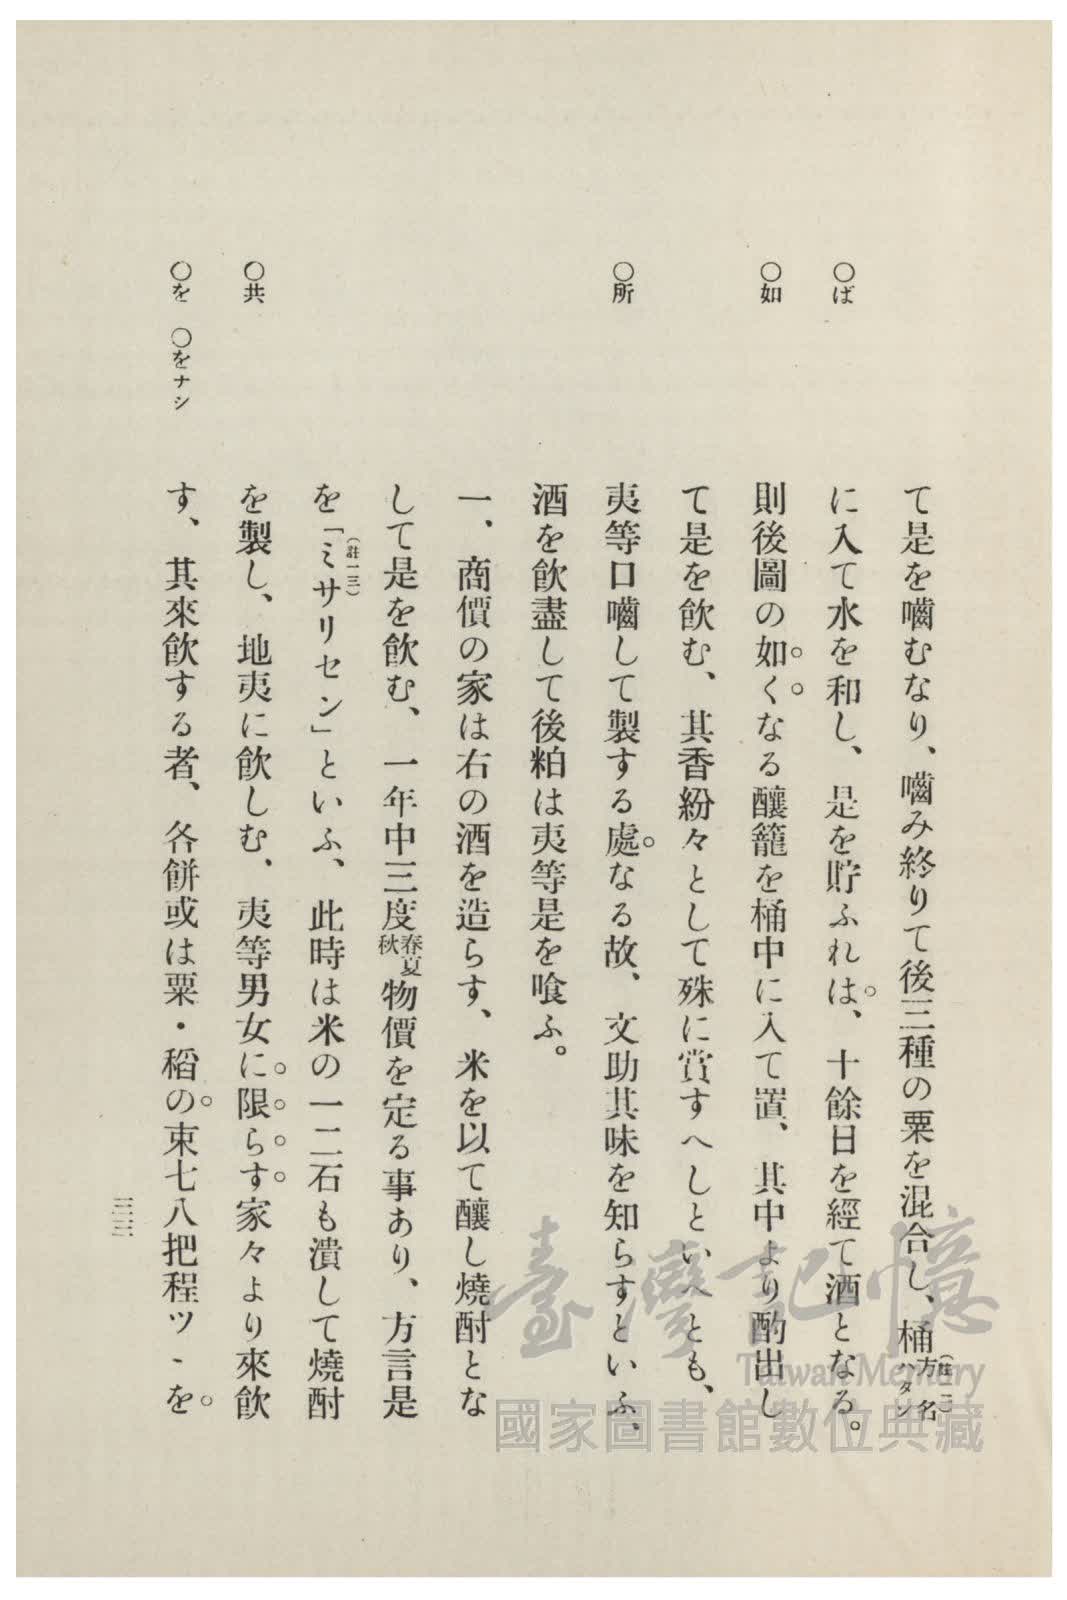 て是を嚙むなり、嚙み終りて後三種の粟を混合し、桶方名ハタン
○ば
に入て水を和し、是を貯ふれは、十餘日を經て酒となる。
○如
則後圖の如くなる釀籠を桶中に入て置、其中より酌出し
て是を飮む、其香紛々として殊に賞すへしといへとも、
○所
夷等口嚙して製する處なる故、文助其味を知らすといふ、
酒を飮盡して後粕は夷等是を喰ふ。
一、商價の家は右の酒を造らす、米を以て釀し燒酎とな
して是を飮む、一年中三度春夏秋物價を定る事あり、方言是
を「ミサリセン」といふ、此時は米の一二石も潰して燒酎
(註一三)
○共
を製し、地夷に飮しむ、夷等男女に限らす家々より來飮
○を ○をナシ
す、其來飮する者、各餅或は粟・稻の束七八把程ツヽを
三三
臺灣記憶
Taiwan Memory
國家圖書館數位典藏